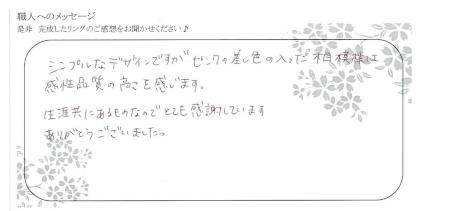 職人へのメッセージ
是非 完成したリングのご感想をお聞かせください♪
シンプルなデザインですが ピンクの差し色の入った相模様は
感性品質の高さを感じます。
生涯共にあるものなのでとても感謝しています
ありがとうございましたっ